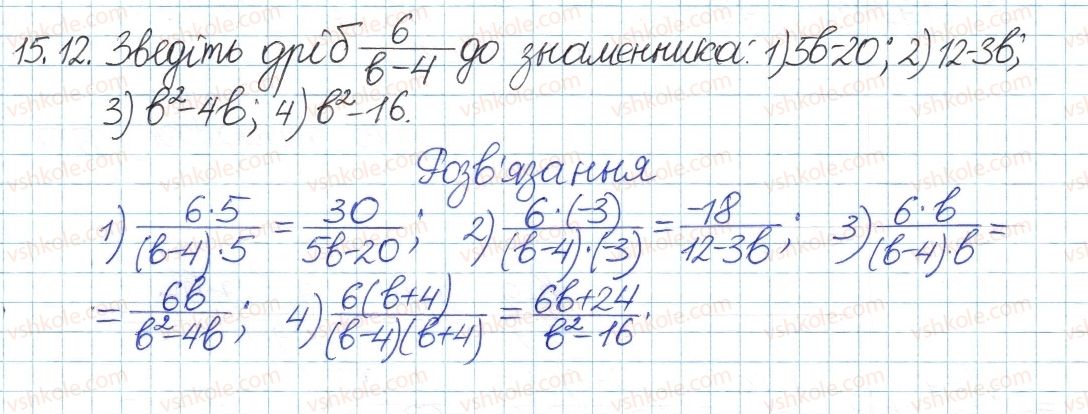 15.12. Зведіть дріб 6/(b-4) до знаменника: 1) 5b-20; 2) 12-3b;
3) b²-4b; 4) b²-16.
Розв'язання
1) (6·5)/((b-4)·5) = 30/(5b-20); 2) (6·(-3))/((b-4)·(-3)) = -18/(12-3b); 3) (6·b)/((b-4)·b) =
= 6b/(b²-4b); 4) (6(b+4))/((b-4)(b+4)) = (6b+24)/(b²-16).
vshkole.com